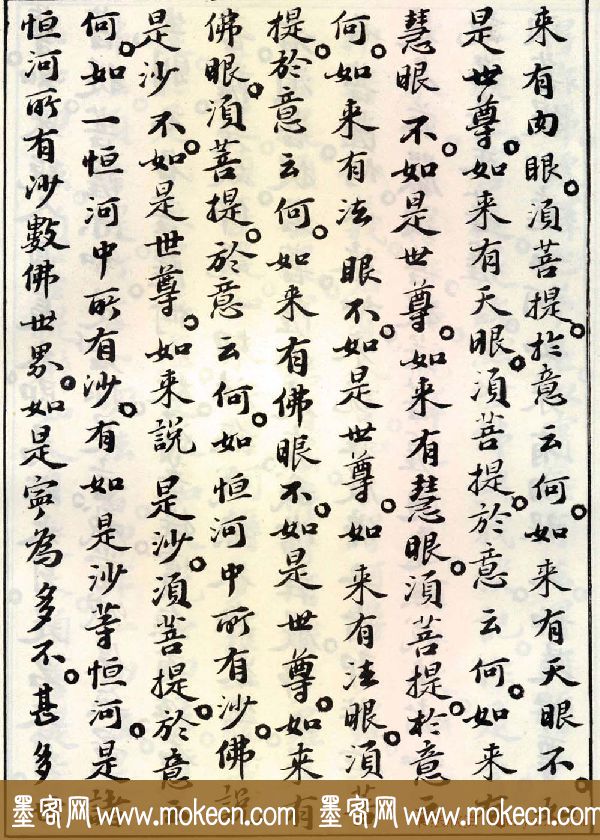 来有肉眼。須菩提。於意云何。如来有天眼不。
是世尊。如来有天眼。須菩提。於意云何。如来有
慧眼不。如是世尊。如来有慧眼。須菩提。於意云
何。如来有法眼不。如是世尊。如来有法眼。須菩
提。於意云何。如来有佛眼不。如是世尊。如来有
佛眼。須菩提。於意云何。如恒河中所有沙。佛說
是沙不。如是世尊。如来說是沙。須菩提。於意云
何。如一恒河中所有沙。有如是沙等恒河。是諸
恒河所有沙數佛世界。如是寧為多不。甚多
墨客网 www.mokecn.com 墨客网 www.mokecn.com